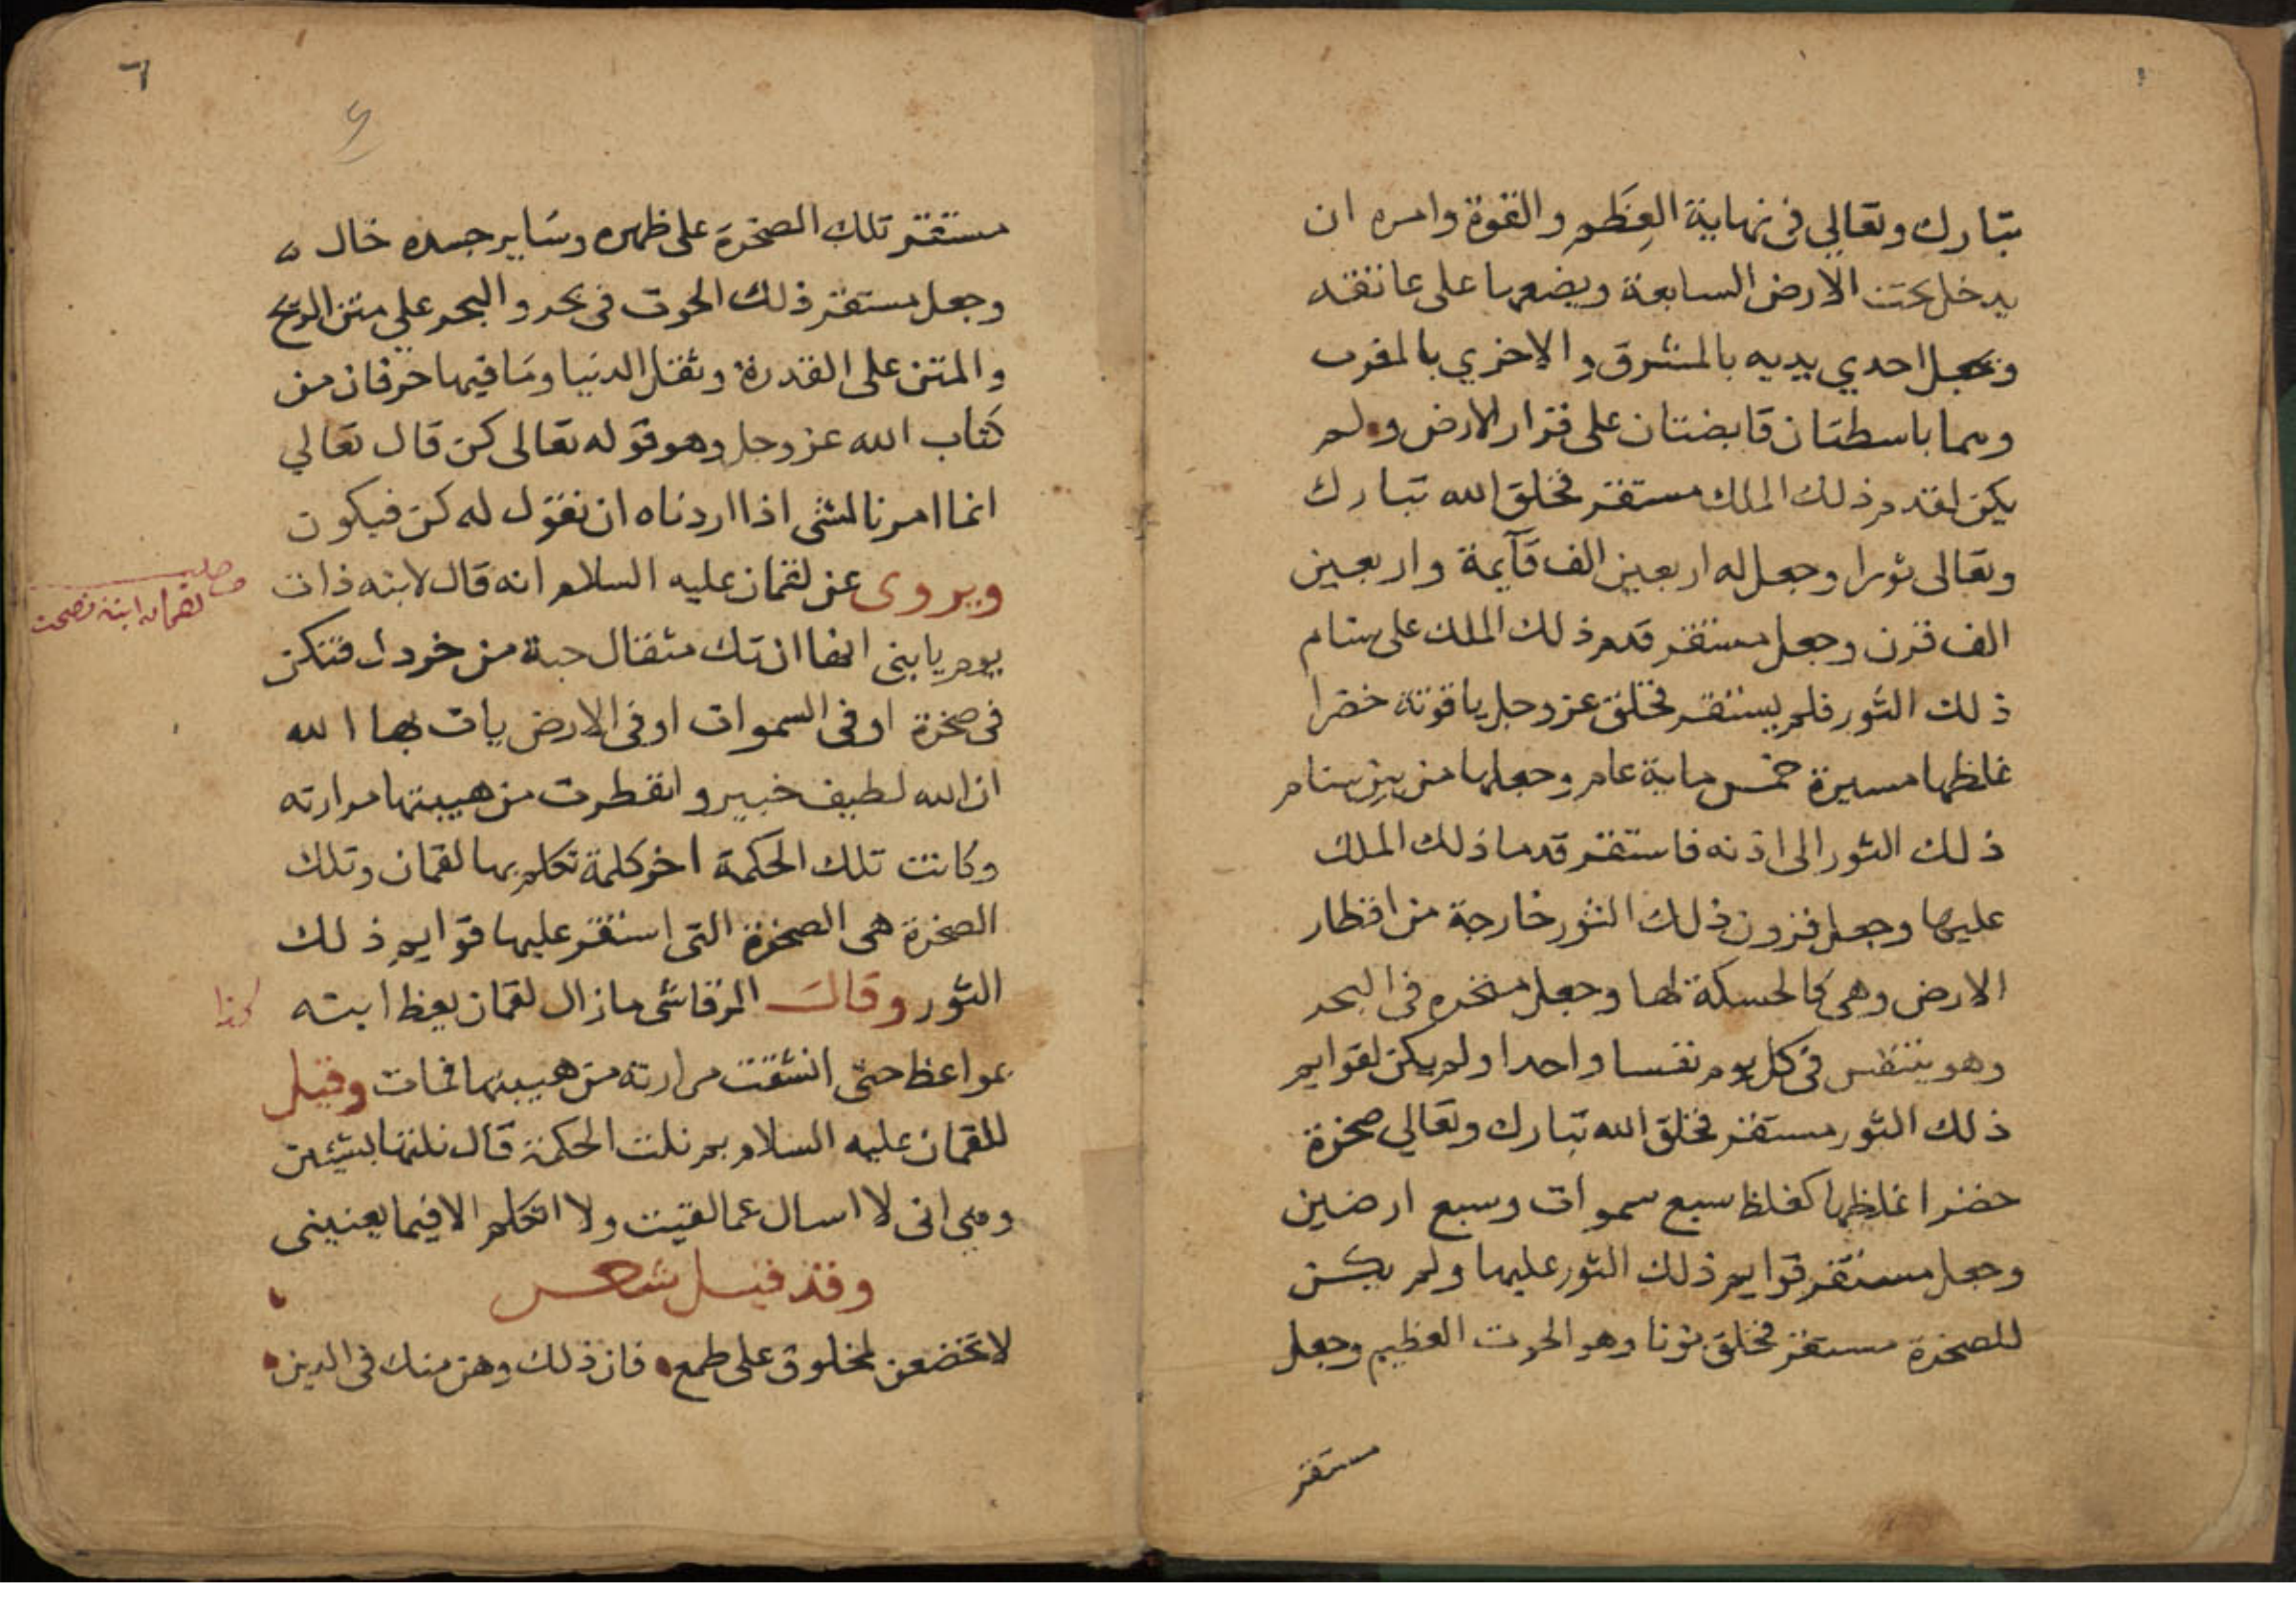 تبارك وتعالي في نهاية العِظَم والقوة وامره ان
يدخل تحت الارض السابعة ويضعها على عاتقه
ونجعل احدي يديه بالمشرق والاخري بالمغرب
وهما باسطتان قابضتان على قرار الارض ولم
يكن لقدم ذلك الملك مستقر فخلق الله تبارك
وتعالى ثورا وجعل له اربعين الف قآيمة واربعين
الف قرن وجعل مستقر قدم ذلك الملك على سنام
ذلك الثور فلم يستقر فخلق عز وجل ياقوتة خضرا
غلظها مسيرة خمس ماية عام وجعلها من بين سنام
ذلك الثور الى اذنه فاستقر قدما ذلك الملك
عليها وجعل قرون ذلك الثور خارجة من اقطار
الارض وهي كالحسكة لها وجعل منخره في البحر
وهو يتنفس في كل يوم نفسا واحدا ولم يكن لقوايم
ذلك الثور مستقر فخلق الله تبارك وتعالي صخرة
خضرا غلظها كغلظ سبع سموات وسبع ارضين
وجعل مستقر قوايم ذلك الثور عليها ولم يكن
للصخرة مستقر فخلق نونا وهو الحوت العظيم وجعل
مستقر
٦
مستقر تلك الصخرة على ظهره وسَاير جسده خال ه
وجعل مستقر ذلك الحوت في بحر والبحر علي متن الريح
والمتن على القدرة وثقل الدنيا ومَا فيها حرفان من
كتاب الله عز وجل وهو قوله تعالى كن قال تعالي
انما امرنا لشي اذا اردناه ان نقول له كن فيكون
ويروى عن لقمان عليه السلام انه قال لابنه ذات
لقمان ابنه نصحت
يوم يابني انها ان تك مثقال حبة من خردل فتكن
في صخرة او في السموات او في الارض يات بها الله
ان الله لطيف خبير وانفطرت من هيبتها مرارته
وكانت تلك الحكمة اخر كلمة تكلم بها لقمان وتلك
الصخرة هي الصخرة التي استقر عليها قوايم ذلك
الثور وقال الرقاشي مازال لقمان يعظ ابنه
كذا
بمواعظ حتى انشقت مرارته من هيبتها فمات وقيل
للقمان عليه السلام بم نلت الحكمة قال نلتها بشيئين
وهي اني لا اسال عما لقيت ولا اتكلم الا فيما يعنيني
وقد قيل شعر
لا تخضعن لمخلوق على طمع فان ذلك وهن منك في الدين